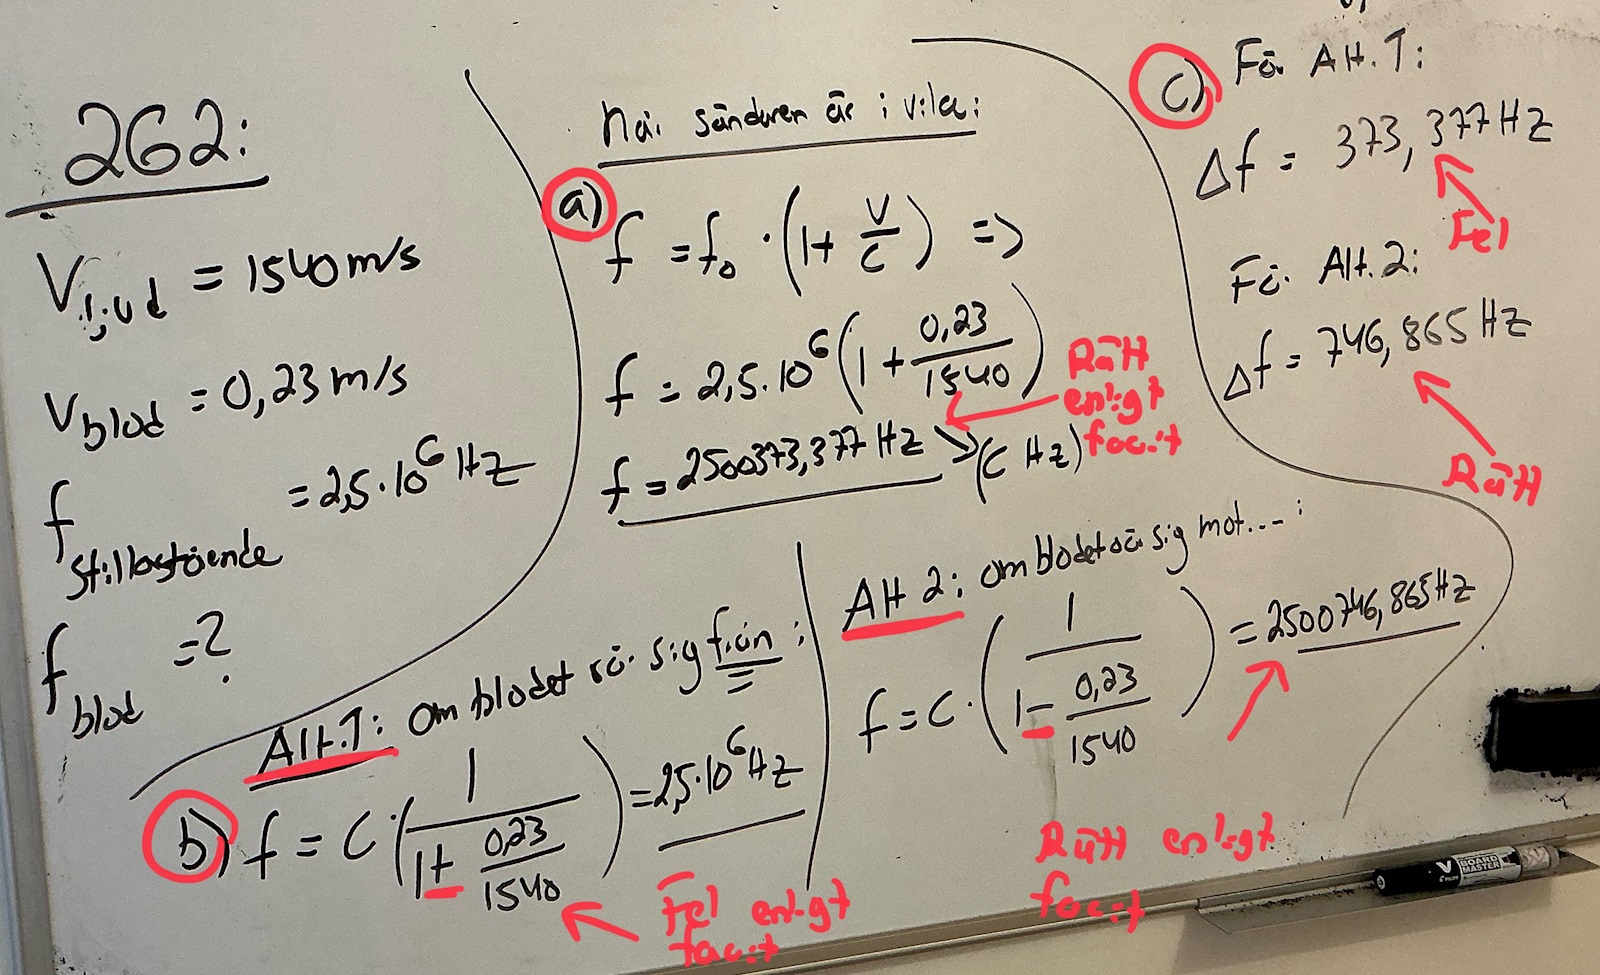 262:
V ljud = 1540 m/s
V blod = 0,23 m/s
f stillastående = 2,5·10⁶ Hz
f blod = ?
När sändaren är i vila:
a) f = f₀ · (1 + V/C) =>
f = 2,5·10⁶ (1 + 0,23/1540)
f = 2500373,377 Hz > (C Hz)
Rätt
enligt
facit
Alt. 1: Om blodet rör sig från:
b) f = C · (1/(1 + 0,23/1540)) = 2,5·10⁶ Hz
Fel enligt
facit
Alt 2: om blodet rör sig mot...:
f = C · (1/(1 - 0,23/1540)) = 2500746,865 Hz
Rätt enligt
facit
c) För Alt. 1:
Δf = 373,377 Hz
Fel
För Alt. 2:
Δf = 746,865 Hz
Rätt
V BOARD
MASTER
PILOT